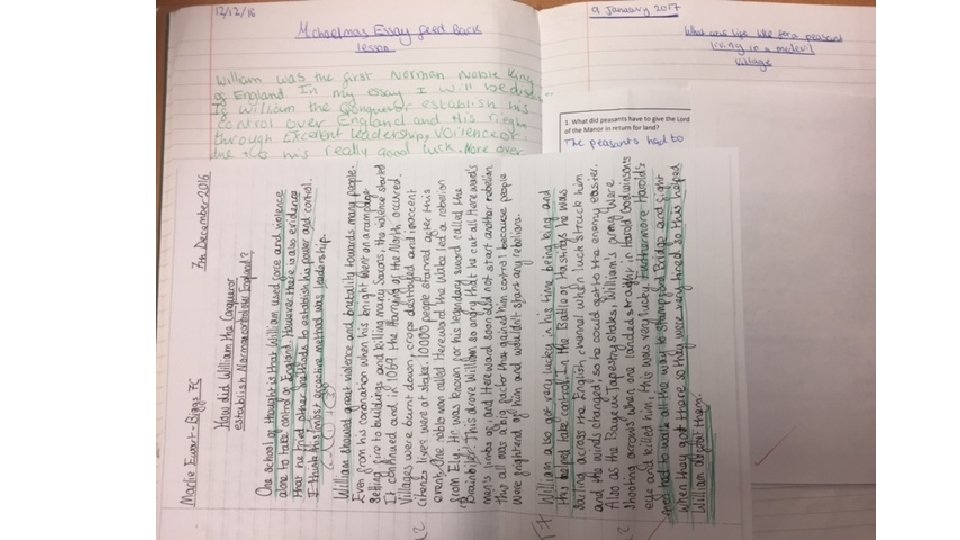 12/12/16
Micholmas Essay feed Back
lesson
William was the first Norman Noble King
of England In my essay I will be
William the Conqueror establish his
control over England and this
through Excelent Leadership, Voilence
due to his really good luck. More over
9 January 2017
What was life like for a peasant
living in a
village
1. What did peasants have to give the Lord
of the Manor in return for land?
The peasants had to
7th December 2016
How did William the Conqueror
establish Norman control over England?
One school of thought is that William used force and violence
alone to take control of England. However there is also evidence
that he tried other methods to establish his power and control.
I think his most effective method was leadership.
William showed great violence and brutality towards many people.
Even from his coronation when his knight went on a rampage
setting fire to buildings and killing many Saxons, the violence started
It continued and in 1069 the Harrying of the North occured.
Villages were burnt down, crops destroyed and innocent
lives were at stake. 10000 people starved after this
event. One noble man called Hereward the Wake led a rebelion
from Ely. He was known for his legendary sword called the
Brainbiter. This drove William so angry that he cut all Herewards
mens limbs off and Hereward soon did not start another rebelion
this all was a big factor that gained him control because people
were frightend of him and wouldn't start any rebelions.
William also got very lucky in his time being king and
this helped take control. In the Battle of Hastings he was
sailing across the English channel when luck struck him
and the winds changed, so he could get to the enemy easier.
Also as the Bayeux Tapestry states, William's army were
shooting arrows when one landed straight in Harold Godwinsons
eye and killed him, this was very lucky. Furthermore Harolds
had to walk all the way to Stamford Bridge and fight
when they got there so they were very tired so this helped
William